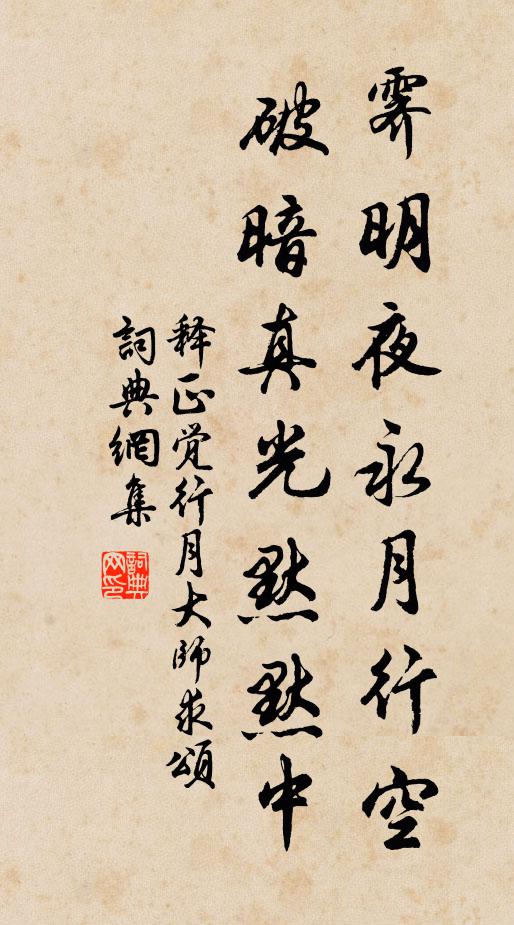 霁明夜永月行空
破暗真光默默中
释正觉行月大师求颂
词典網集
詞典网印